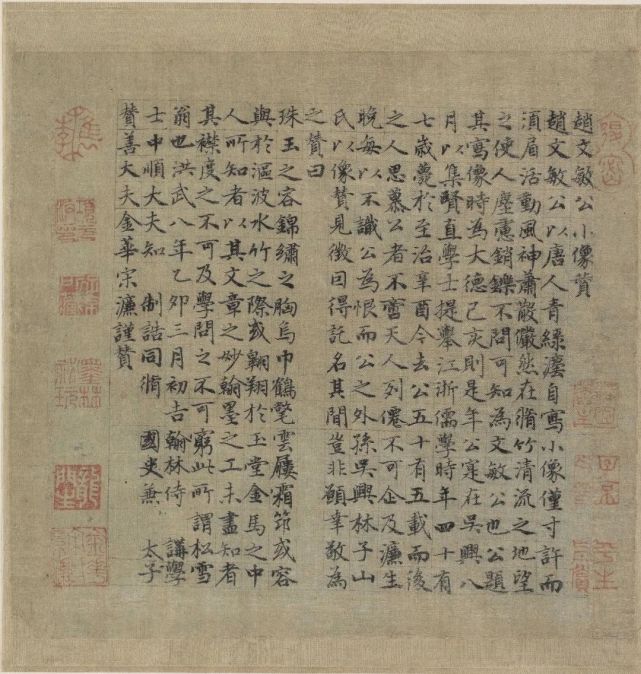 趙文敏公小像贊
趙文敏公以唐人青綠濃自寫小像僅寸許而
須眉活動風神蕭散儼然在脩竹清流之地望
之使人塵慮銷鑠不問可知為文敏公也公題
其寫像時為大德己亥則是年公寔在吳興八
月以集賢直學士提舉江浙儒學時年四十有
七歲薨於至治辛酉今去公五十有五載而後
之人思慕公者不啻天人列僊不可企及濂生
晚每以不識公為恨而公之外孫吳興林子山
氏以像贊見徵因得託名其間豈非願幸敬為
之贊曰
珠玉之容錦繡之胸烏巾鶴氅雲屨霜筇或容
與於漚波水竹之際或翱翔於玉堂金馬之中
人所知者以其文章之妙翰墨之工未盡知者
其襟度之不可及學問之不可窮此所謂松雪
翁也洪武八年乙卯三月初吉翰林侍講學
士中順大夫知制誥同脩國史兼太子
贊善大夫金華宋濂謹贊